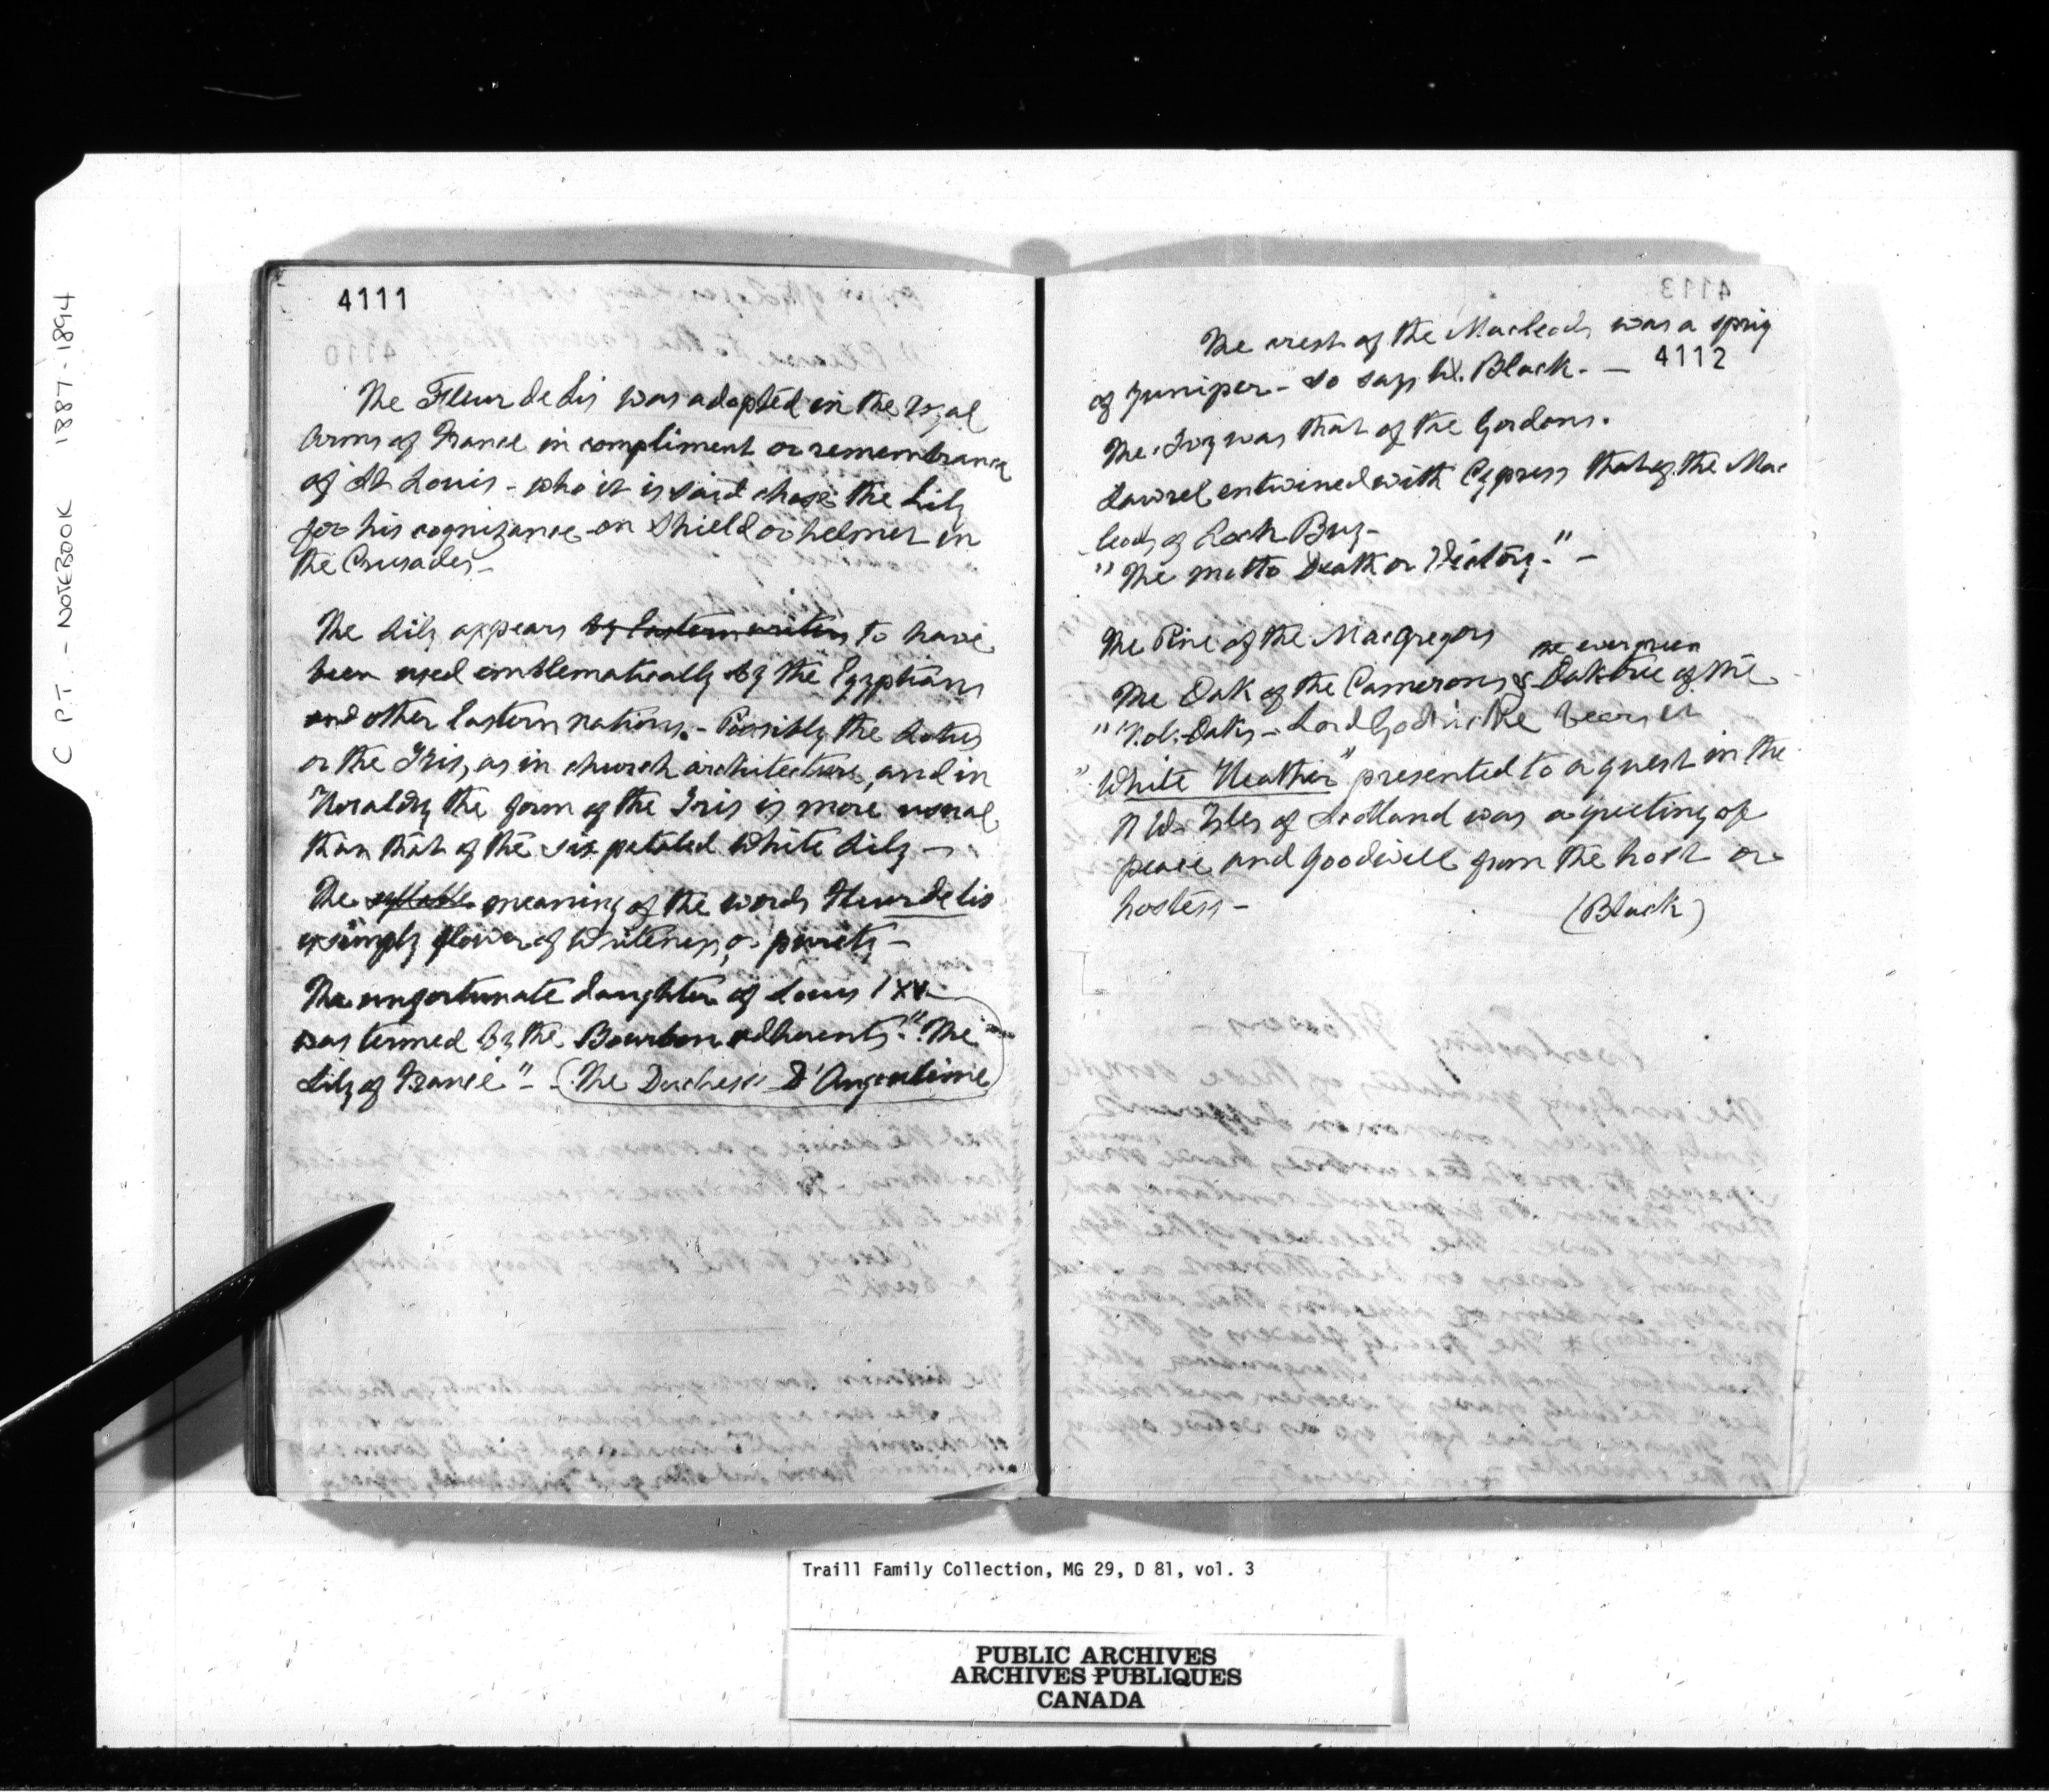 C P.T. - NOTEBOOK 1887-1894
4111
The Fleur de Lis was adopted in the royal
Arms of France in compliment or remembrance
of St Louis - who it is said chose the Lily
for his cognizance on Shield or helmet in
the Crusades -
The Lily appears by Eastern writers to have
been used emblematically by the Egyptians
and other Eastern nations. - Possibly the Lotus
or the Iris, as in church architecture, and in
Heraldry the form of the Iris is more usual
than that of the six petaled White Lily -
The syllable meaning of the words Fleur de Lis
is simply flower of Whiteness, or purity -
The unfortunate daughter of Louis 1XV
was termed by the Bourbon adherents. "The
Lily of France" - (The Duchess D'Angouleme)
4113
The crest of the Macleods was a sprig
4112
of Juniper - so says W. Black. -
The Ivy was that of the Gordons.
Laurel entwined with Cypress that of the Mac
leods of Loch Buy -
"The motto Death or Victory." -
The Pine of the Macgregors
the evergreen
The Oak of the Camerons & Oak tree of the
Oaks - Lord bears it
"White Heather" presented to a guest in the
N W. Isles of Scotland was a greeting of
peace and goodwill from the host or
hostess -
(Black)
Traill Family Collection, MG 29, D 81, vol. 3
PUBLIC ARCHIVES
ARCHIVES PUBLIQUES
CANADA